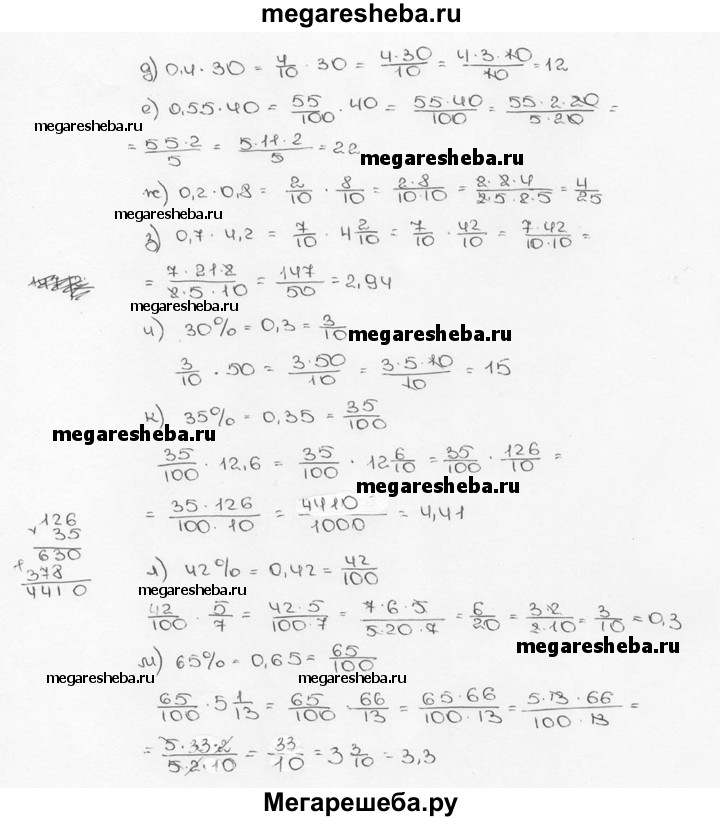 megaresheba.ru
д) 0,4 · 30 = 4/10 · 30 = 4·30/10 = 4·3·10/10 = 12
е) 0,55 · 40 = 55/100 · 40 = 55·40/100 = 55·2·20/5·20 =
megaresheba.ru
= 55·2/5 = 5·11·2/5 = 22
megaresheba.ru
ж) 0,2 · 0,8 = 2/10 · 8/10 = 2·8/10·10 = 2·2·4/2·5·2·5 = 4/25
megaresheba.ru
з) 0,7 · 4,2 = 7/10 · 4 2/10 = 7/10 · 42/10 = 7·42/10·10 =
= 7·21·2/2·5·10 = 147/50 = 2,94
megaresheba.ru
и) 30% = 0,3 = 3/10
megaresheba.ru
3/10 · 50 = 3·50/10 = 3·5·10/10 = 15
к) 35% = 0,35 = 35/100
megaresheba.ru
35/100 · 12,6 = 35/100 · 12 6/10 = 35/100 · 126/10 =
megaresheba.ru
= 35·126/100·10 = 4410/1000 = 4,41
126
× 35
630
+ 378
4410
л) 42% = 0,42 = 42/100
megaresheba.ru
42/100 · 5/7 = 42·5/100·7 = 7·6·5/5·20·7 = 6/20 = 3·2/2·10 = 3/10 = 0,3
megaresheba.ru
м) 65% = 0,65 = 65/100
megaresheba.ru
megaresheba.ru
65/100 · 5 1/13 = 65/100 · 66/13 = 65·66/100·13 = 5·13·66/100·13 =
= 5·33·2/5·2·10 = 33/10 = 3 3/10 = 3,3
Мегарешеба.ру